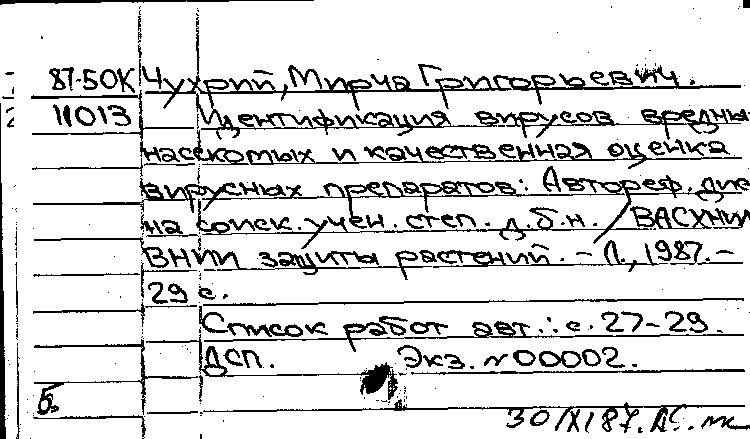 87-50К Чухрий, Мирча Григорьевич.
11013 Идентификация вирусов вредны
насекомых и качественная оценка
вирусных препаратов: Автореф. дис
на соиск. учен. степ. д.б.н. / ВАСХНИЛ
ВНИИ защиты растений. – Л., 1987. –
29 с.
Список работ авт.: с. 27–29.
ДСП. Экз. №00002.
Б.
30/XI87.